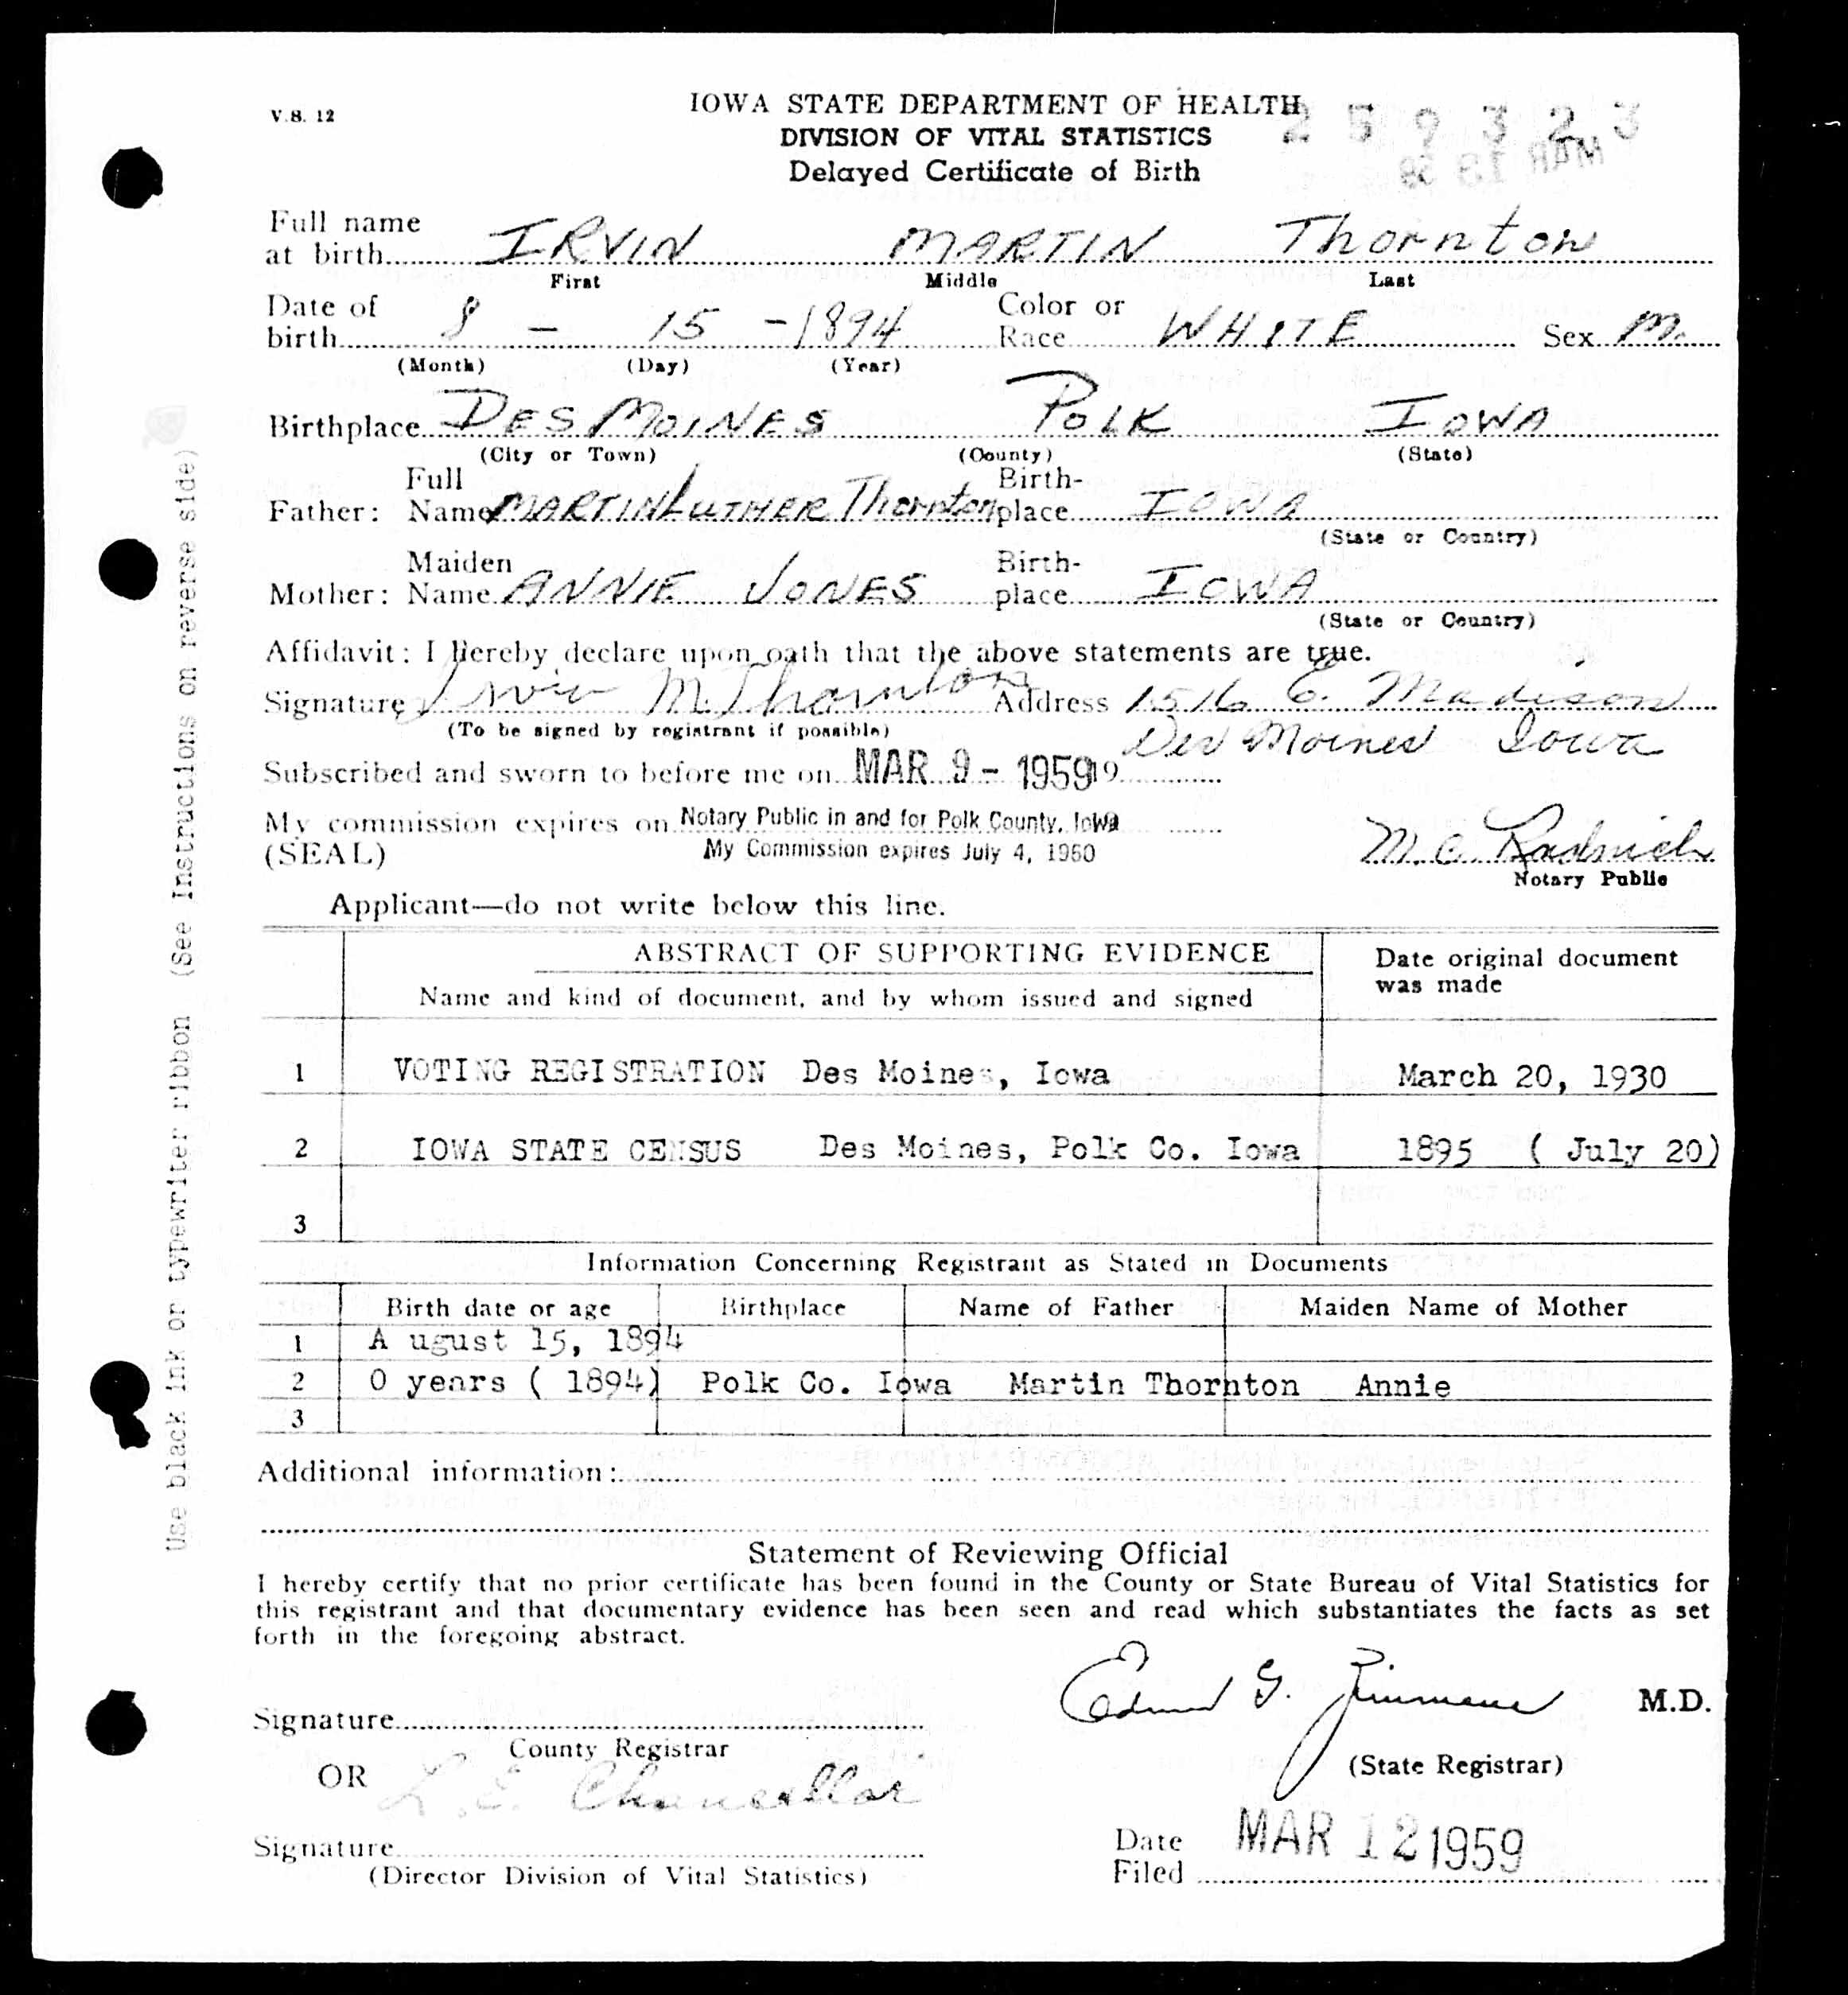 V.S. 12
IOWA STATE DEPARTMENT OF HEALTH
259323
DIVISION OF VITAL STATISTICS
Delayed Certificate of Birth
MAR 13
Full name
at birth IRVIN MARTIN Thornton
First Middle Last
Date of birth 8 - 15 - 1894 Color or Race WHITE Sex M.
(Month) (Day) (Year)
Birthplace DES MOINES POLK IOWA
(City or Town) (County) (State)
Father: Full Name MARTIN LUTHER Thornton Birth-place IOWA
(State or Country)
Mother: Maiden Name ANNIE JONES Birth-place IOWA
(State or Country)
Affidavit: I hereby declare upon oath that the above statements are true.
Signature Irvin M. Thornton Address 1516 E. Madison
(To be signed by registrant if possible) Des Moines Iowa
Subscribed and sworn to before me on MAR 9 - 1959 19
My commission expires on Notary Public in and for Polk County, Iowa
(SEAL) My Commission expires July 4, 1960 M. C.
Notary Public
Applicant—do not write below this line.
ABSTRACT OF SUPPORTING EVIDENCE Date original document
Name and kind of document, and by whom issued and signed was made
1 VOTING REGISTRATION Des Moines, Iowa March 20, 1930
2 IOWA STATE CENSUS Des Moines, Polk Co. Iowa 1895 ( July 20)
3
Information Concerning Registrant as Stated in Documents
Birth date or age Birthplace Name of Father Maiden Name of Mother
1 A ugust 15, 1894
2 0 years ( 1894) Polk Co. Iowa Martin Thornton Annie
3
Additional information:
Statement of Reviewing Official
I hereby certify that no prior certificate has been found in the County or State Bureau of Vital Statistics for
this registrant and that documentary evidence has been seen and read which substantiates the facts as set
forth in the foregoing abstract.
Edmund G. Zimmerer M.D.
Signature
County Registrar (State Registrar)
OR L. E. Chancellor
Signature Date Filed MAR 12 1959
(Director Division of Vital Statistics)
Use black ink or typewriter ribbon (See Instructions on reverse side)